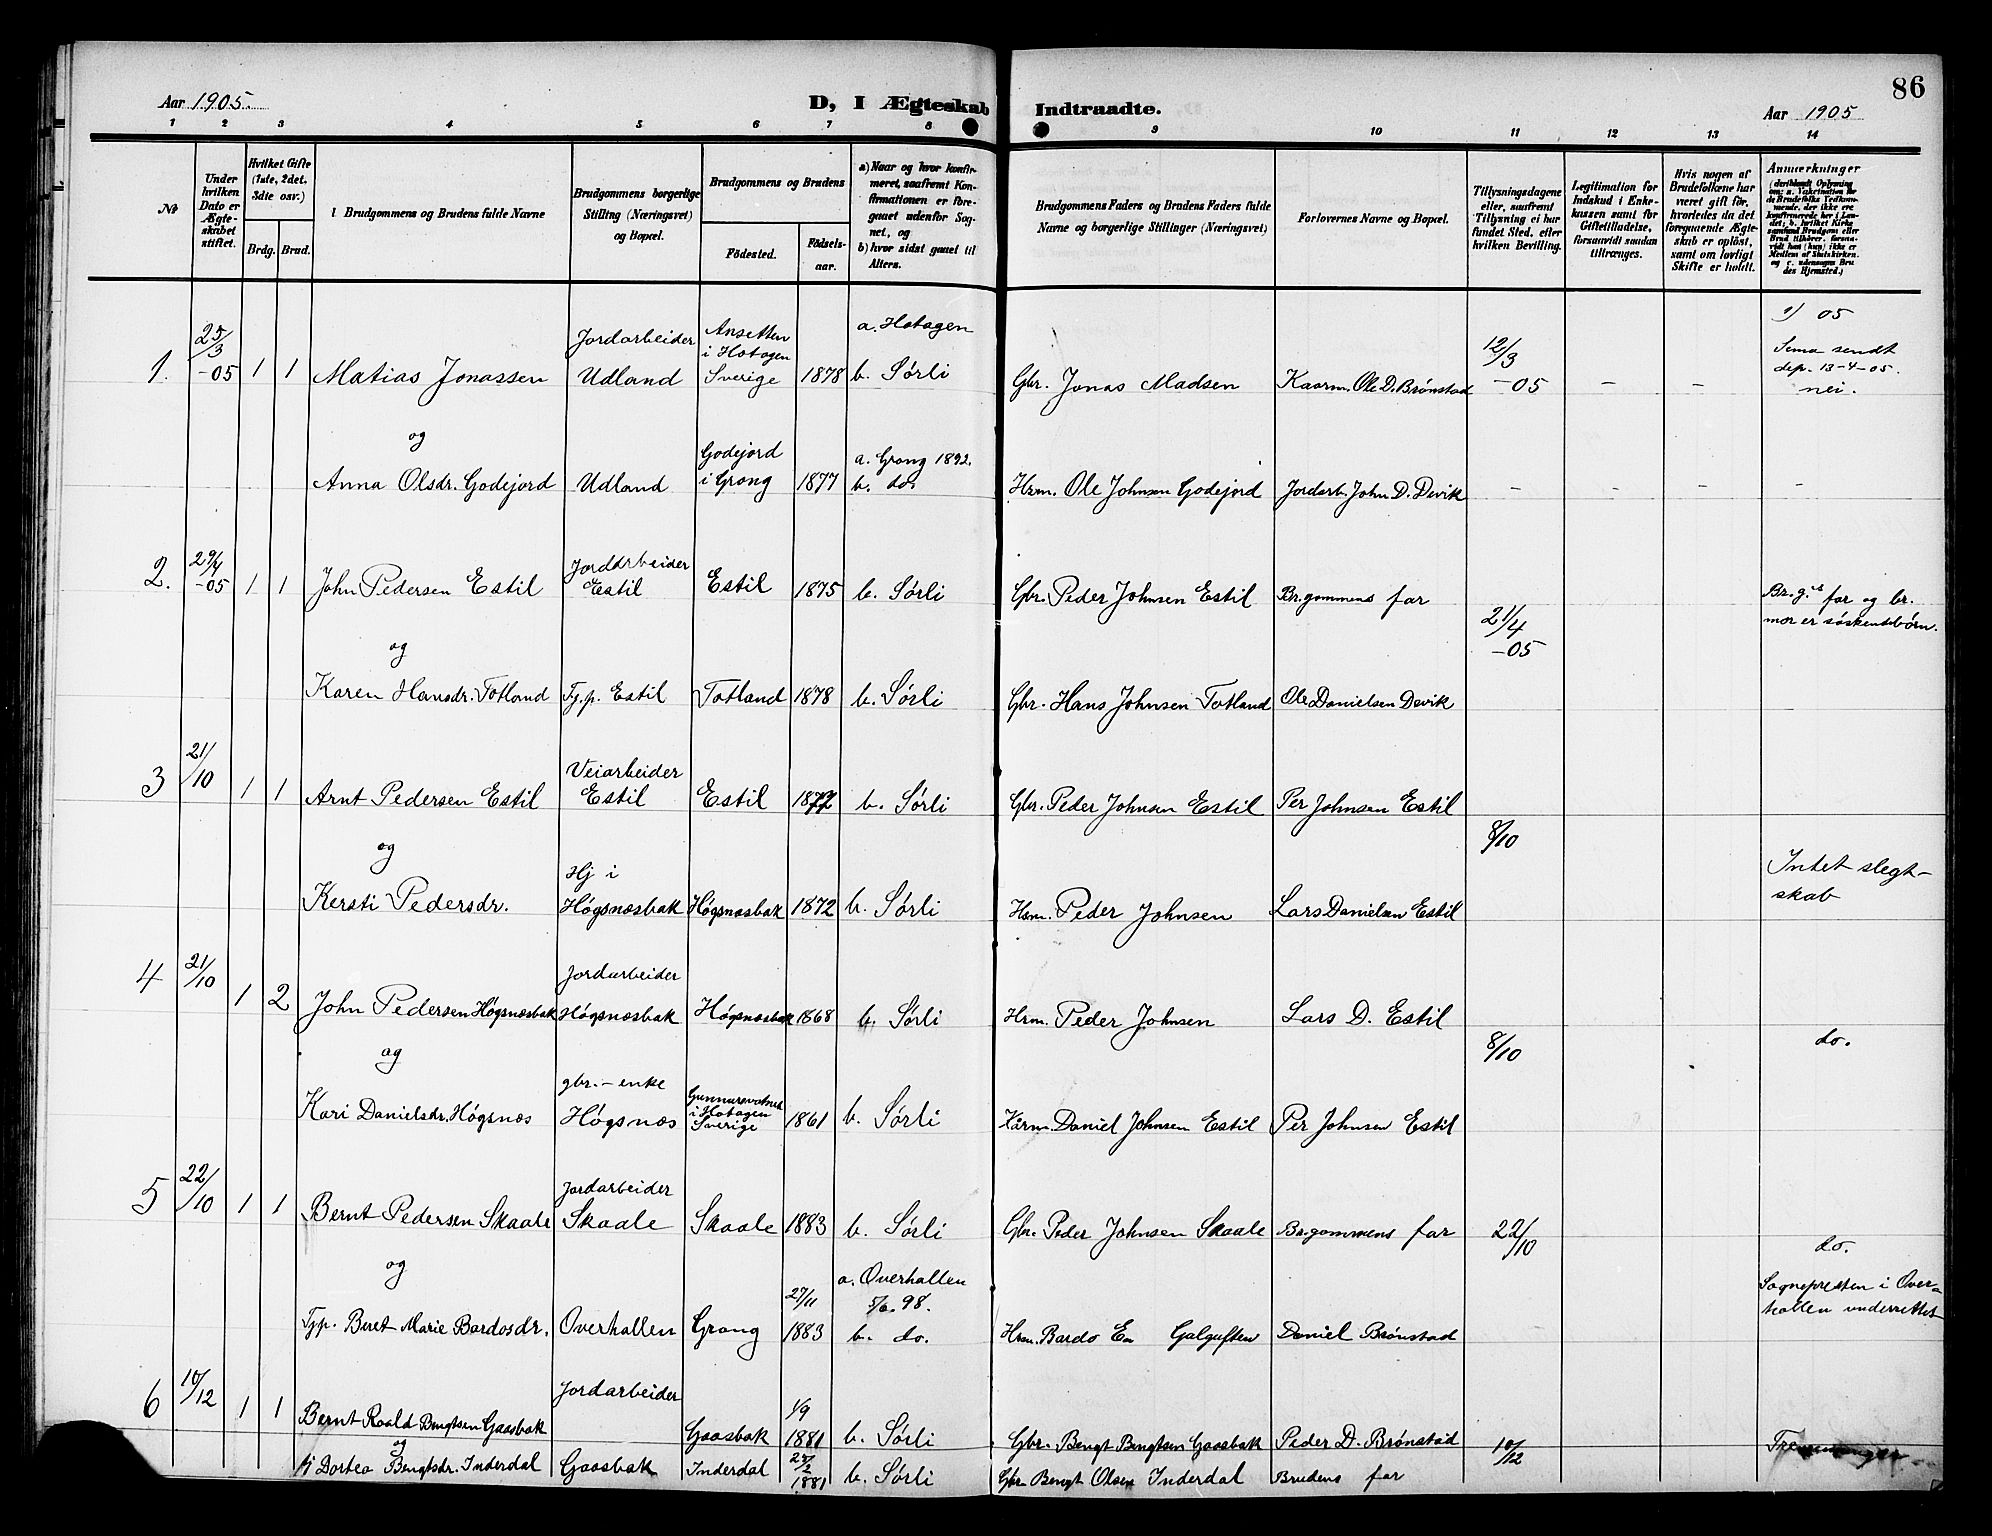 86
Aar 1905. D, I Ægteskab Indtraadte. Aar 1905
1 2 3 4 5 6 7 8 9 10 11 12 13 14
№
Under hvilken Dato er Ægteskabet stiftet.
Hvilket Gifte (1ste, 2det, 3die osv.)
Brdg. Brud.
Brudgommens og Brudens fulde Navne
Brudgommens borgerlige Stilling (Næringsvei) og Bopæl.
Brudgommens og Brudens
Fødested. Fødselsaar.
a) Naar og hvor konfirmeret, saafremt Konfirmationen er foregaaet udenfor Sognet, og
b) hvor sidst gaaet til Alters.
Brudgommens Faders og Brudens Faders fulde Navne og borgerlige Stillinger (Næringsvei)
Forlovernes Navne og Bopæl.
Tillysningsdagene eller, saafremt Tillysning ei har fundet Sted, efter hvilken Bevilling.
Legitimation for Indskud i Enkekassen samt for Giftetilladelse, forsaavidt saadan tiltrænges.
Hvis nogen af Brudefolkene har været gift før, hvorledes da det foregaaende Ægteskab er opløst, samt om lovligt Skifte er holdt.
Anmærkninger
(deriblandt Oplysning om: a. Vakcination for de Brudefolks Vedkommende, der ikke ere konfirmerede her i Landet; b. hvilket Kirkesamfund Brudgom eller Brud tilhører, forsaavidt han (hun) ikke er Medlem af Statskirken, og c. udensogns Brudes Hjemsted.)
1. 25/3 -05 1 1 Matias Jonassen Jordarbeider Udland Ansetten i Hotagen Sverige 1878 a. Hotagen b. Sørli Gbr. Jonas Madsen Kaarm. Ole D. Brønstad 12/3 -05 - - 05 Sema sendt dep. 13-4-05. nei.
og
Anna Olsdr. Godejord Udland Godejord i Grong 1877 a. Grong 1892. b. do. Hrm. Ole Johnsen Godejord Jordarb. John D. Devik - - - -
2. 29/4 -05 1 1 John Pedersen Estil Jordarbeider Estil Estil 1875 b. Sørli Gbr. Peder Johnsen Estil Br.gommens far 21/4 -05 Br.g.s far og br. mor er søskendebørn.
og
Karen Hansdr. Totland Tj.p. Estil Totland 1878 b. Sørli Gbr. Hans Johnsen Totland Ole Danielsen Devik
3 21/10 1 1 Arnt Pedersen Estil Veiarbeider Estil Estil 1877 b. Sørli Gbr. Peder Johnsen Estil Per Johnsen Estil 8/10
og
Kersti Pedersdr. Hj i Høgsnæsbak Høgsnæsbak 1872 b. Sørli Hrm. Peder Johnsen Lars Danielsen Estil Intet slegtskab
4 21/10 1 2 John Pedersen Høgsnæsbak Jordarbeider Høgsnæsbak Høgsnæsbak 1868 b. Sørli Hrm. Peder Johnsen Lars D. Estil 8/10 do.
og
Kari Danielsdr. Høgsnæs gbr.-enke Høgsnæs Gunnarsvatnet i Hotagen Sverige 1861 b. Sørli Kårm. Daniel Johnsen Estil Per Johnsen Estil
5 22/10 1 1 Bernt Pedersen Skaale Jordarbeider Skaale Skaale 1883 b. Sørli Gbr. Peder Johnsen Skaale Br.gommens far 22/10 do.
og
Tjp. Beret Marie Bardosdr. Overhallen Grong 27/11 1883 a. Overhallen 5/6. 98. b. do. Hrm. Bardo Galguften Daniel Brønstad Sognepresten i Overhallen underrettet
6 10/12 1 1 Bernt Roald Bengtsen Gaasbak Jordarbeider Gaasbak 1/9 1881 b. Sørli Gbr. Bengt Bengtsen Gaasbak Peder D. Brønstad 10/12 Tremenninger
og
Dortea Bengtsdr. Inderdal Gaasbak Inderdal 1881 b. Sørli Gbr Bengt Olsen Inderdal Brudens far